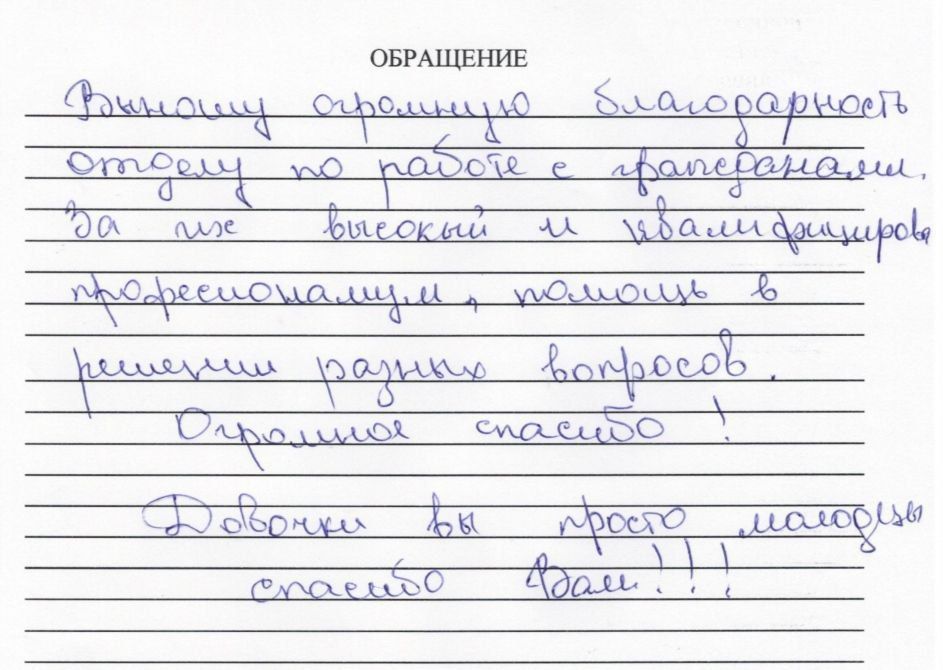 ОБРАЩЕНИЕ
Выношу огромную благодарность
отделу по работе с гражданами.
За их высокый и квалифицирова
професионализм, помощь в
решении разных вопросов.
Огромное спасибо!
Девочки вы просто молодцы
спасибо Вам!!!